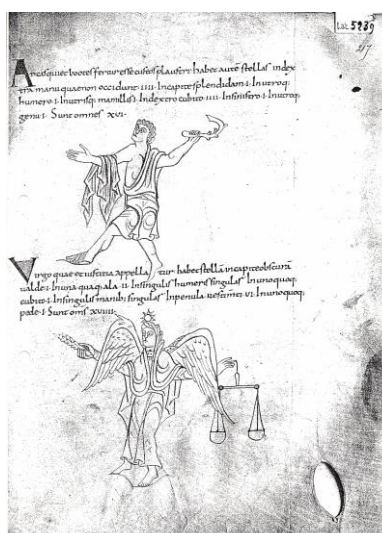 Lat. 5239
217
Arcisquiet bootes fertur esse custos plaustri habet autē stellas in dex
tra manu quae non occidunt IIII In capite splendidam I In utroq;
humero I In utrisq; mamilles I In dextro cubito IIII In sinistro I In utroq;
genu I Sunt omnes XVI
Virgo quae et iustitia appella tur habet stellā in capite obscurā
ualde I In una quaq; ala II In singulis humeris singulas In unoquoq;
cubito I In singulis manib; singulas In penula VI In unoquoq;
pede I Sunt oms̄ XVIIII